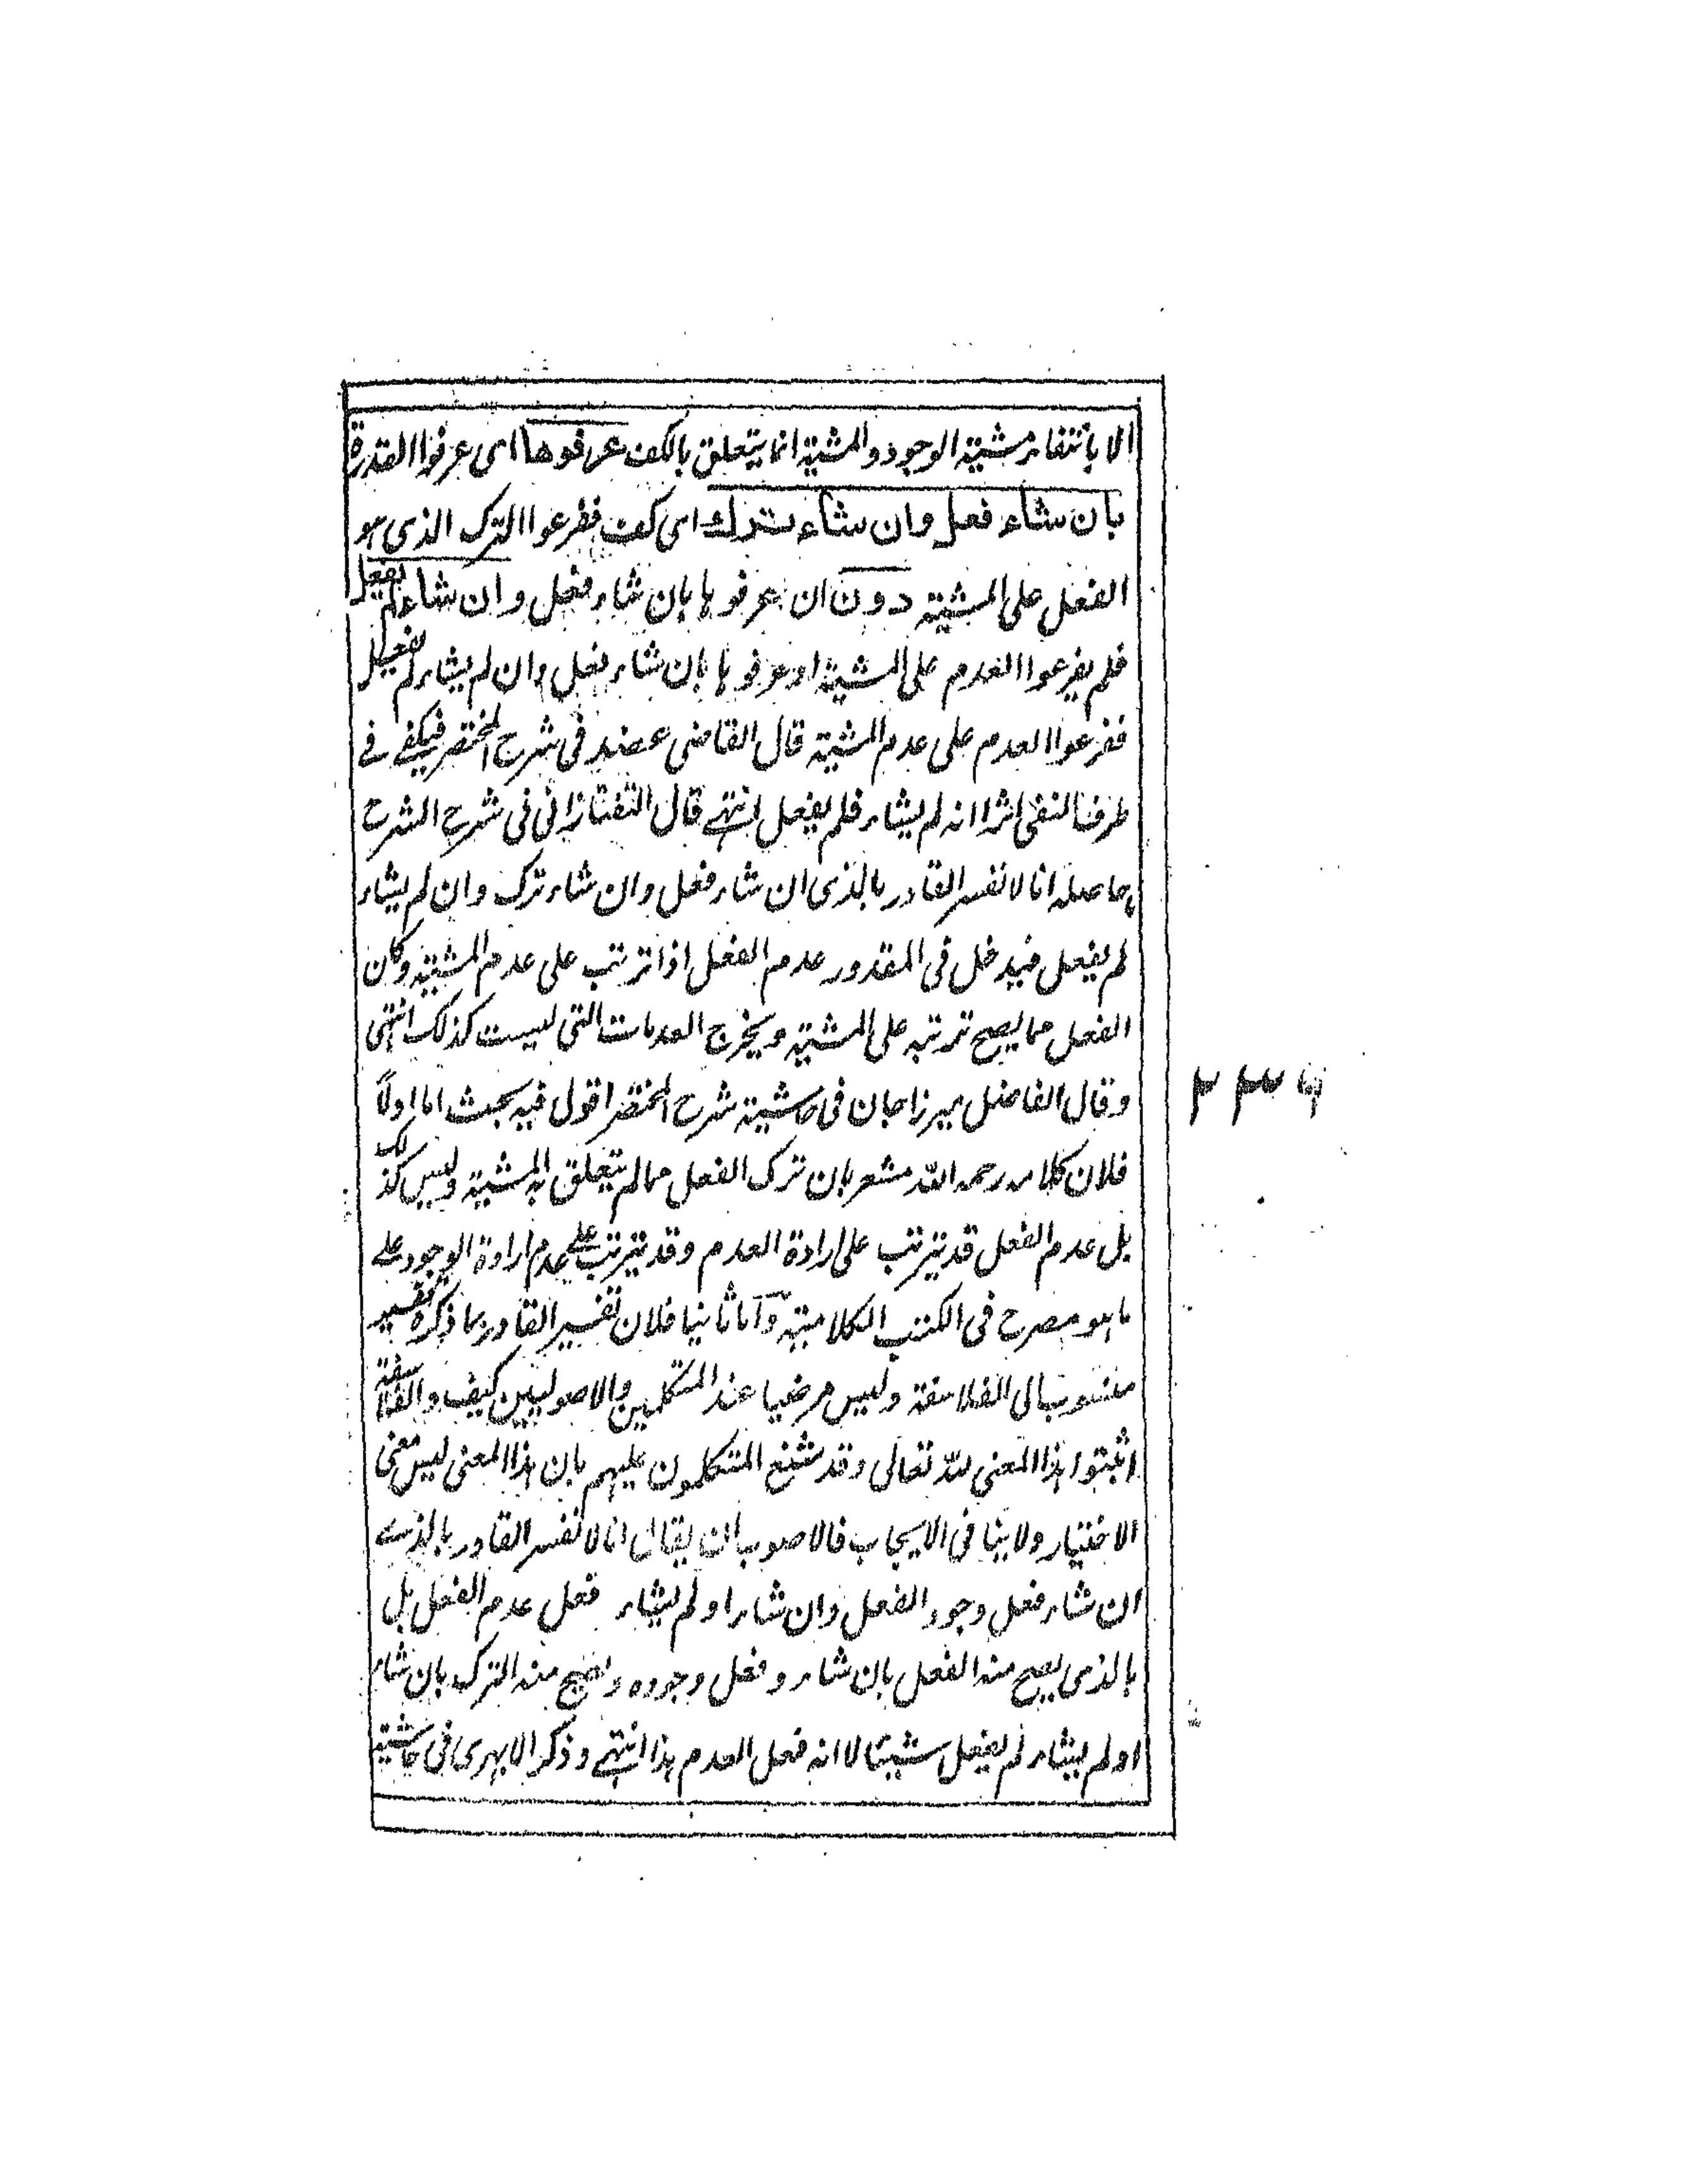 الا بانتفاء مشيته الوجود والمشية انما يتعلق بالكف عرفوها اى عرفوا القدرة
بان شاء فعل وان شاء ترك اى كف ففرعوا الترك الذى هو
الفعل على المشية دون ان عرفوها بان شاء فعل وان شاء لم يفعل
فلم يفرعوا العدم على المشية او عرفوها بان شاء فعل وان لم يشاء لم يفعل
ففرعوا العدم على عدم المشية قال القاضى عضد فى شرح المختصر فيكفى فى
طرف النفى اثرا انه لم يشاء فلم يفعل انتهى قال التفتازانى فى شرح الشرح
حاصله انا لا نفسر القادر بالذى ان شاء فعل وان شاء ترك وان لم يشاء
لم يفعل فيدخل فى المقدور عدم الفعل اذا ترتب على عدم المشية وكان
الفعل مما يصح ترتبه على المشية ويخرج العدمات التى ليست كذلك انتهى
وقال الفاضل ميرزا جان فى حاشية شرح المختصر اقول فيه بحث اما اولاً
فلان كلامه رحمه الله مشعر بان ترك الفعل مما لم يتعلق به المشية وليس كذلك
بل عدم الفعل قد يترتب على ارادة العدم وقد يترتب على عدم ارادة الوجود على
ما هو مصرح فى الكتب الكلامية وآما ثانيا فلان تفسير القادر بما ذكره تفسير
منسوب الى الفلاسفة وليس مرضيا عند المتكلمين والاصوليين كيف والفلاسفة
اثبتوا هذا المعنى لله تعالى وقد شنع المتكلمون عليهم بان هذا المعنى ليس معنى
الاختيار ولا ينافى الايجاب فالاصوب ان يقال انا لا نفسر القادر بالذى
ان شاء فعل وجود الفعل وان شاء او لم يشاء فعل عدم الفعل بل
بالذى يصح منه الفعل بان شاء و فعل وجوده ويصح منه الترك بان شاء
او لم يشاء لم يفعل شيئا لا انه فعل العدم هذا انتهى وذكر الابهرى فى حاشية